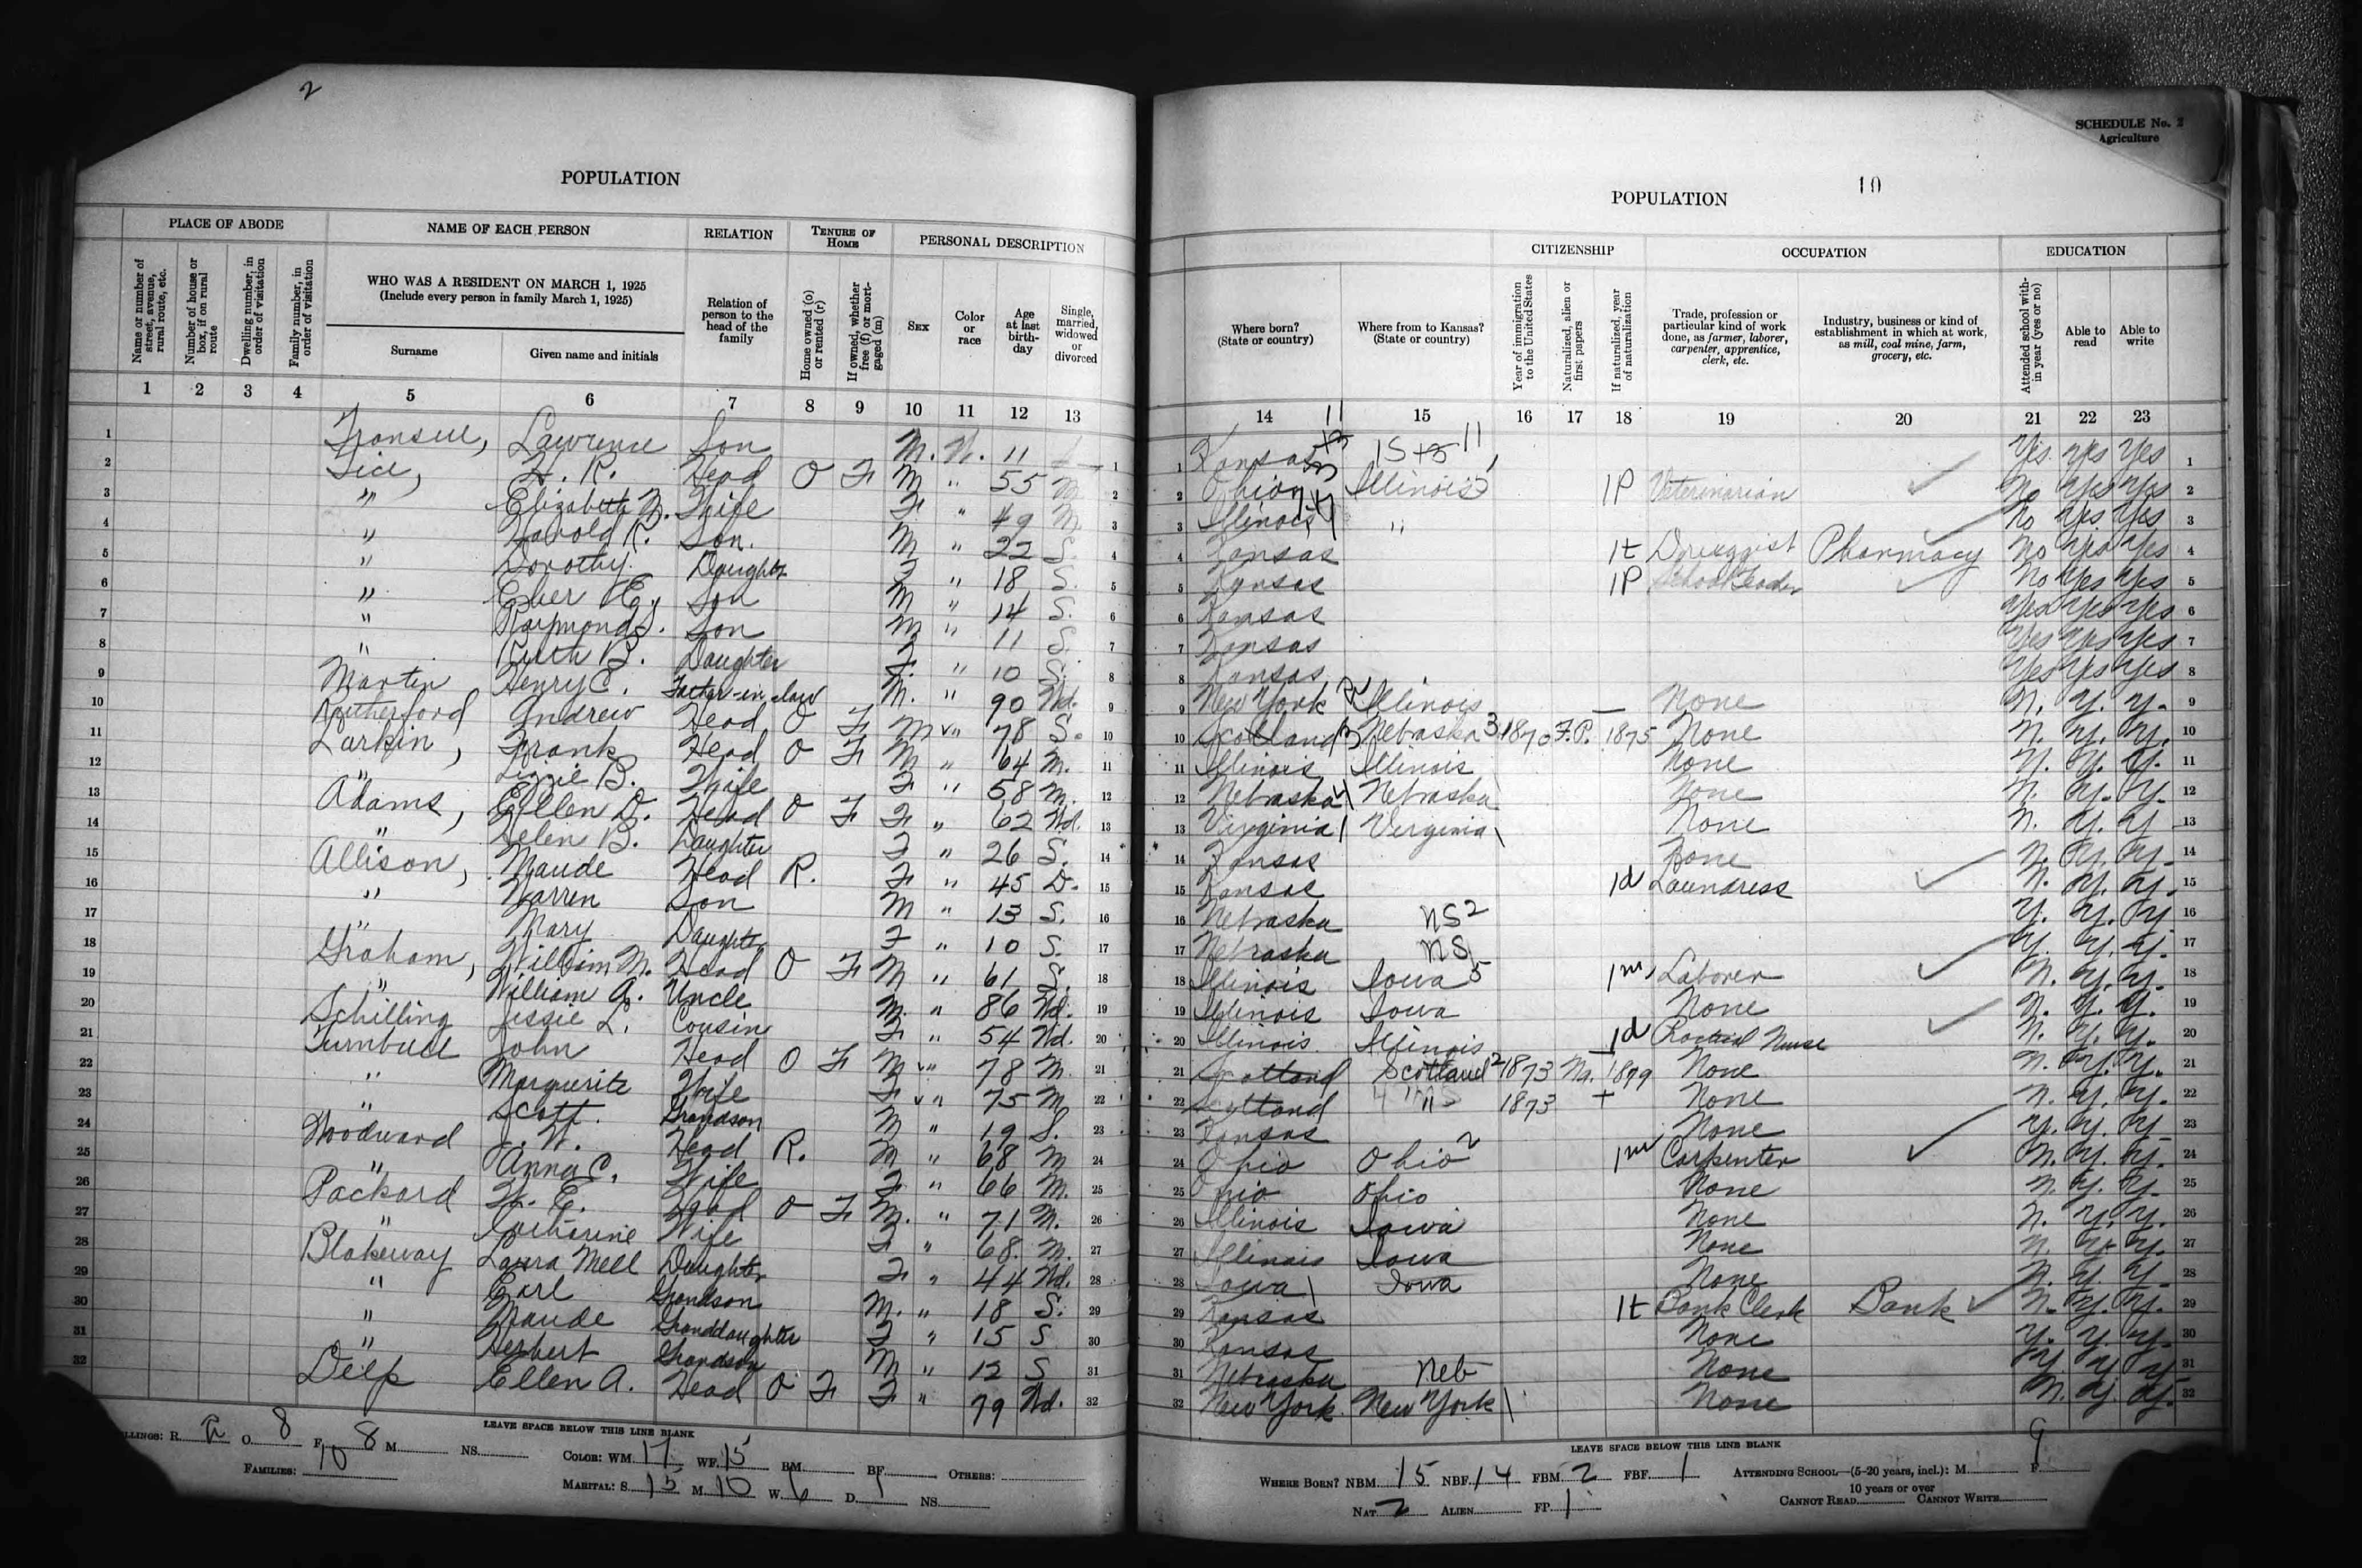 2
POPULATION
PLACE OF ABODE NAME OF EACH PERSON RELATION TENURE OF HOME PERSONAL DESCRIPTION
Name or number of street, avenue, rural route, etc. Number of house or box, if on rural route Dwelling number, in order of visitation Family number, in order of visitation WHO WAS A RESIDENT ON MARCH 1, 1925 (Include every person in family March 1, 1925) Relation of person to the head of the family Home owned (o) or rented (r) If owned, whether free (f) or mortgaged (m) Sex Color or race Age at last birthday Single, married, widowed or divorced
Surname Given name and initials
1 2 3 4 5 6 7 8 9 10 11 12 13
1 Lawrence Son M. W. 11 1
2 Tice, H. R. Head O F M " 55 M 2
3 " Elizabeth M. Wife F " 49 M. 3
4 " Harold R. Son. M " 22 S. 4
5 " Dorothy Daughter F " 18 S. 5
6 " Son M " 14 S. 6
7 " Raymond Son M " 11 S. 7
8 " Ruth B. Daughter F. " 10 S. 8
9 Martin Henry C. Father-in-law M. " 90 Wd. 9
10 Rutherford Andrew Head O F M " 78 S. 10
11 Larkin, Frank Head O F M " 64 M. 11
12 " Lizzie B. Wife F " 58 M. 12
13 Adams, Ellen D. Head O F F " 62 Wd. 13
14 " Helen B. Daughter F " 26 S. 14
15 Allison, Maude Head R. F " 45 D. 15
16 " Warren Son M " 13 S. 16
17 " Mary Daughter F " 10 S. 17
18 Graham, William M. Head O F M " 61 S. 18
19 " William A. Uncle M. " 86 Wd. 19
20 Schilling Jessie L. Cousin F " 54 Wd. 20
21 Turnbull John Head O F M " 78 M. 21
22 " Marguerite Wife F " 75 M 22
23 " Scott. Grandson M " 19 S. 23
24 Woodward J. W. Head R. M " 68 M 24
25 " Anna C. Wife F " 66 M. 25
26 Packard W. E. Head O F M. " 71 M. 26
27 " Catharine Wife F " 68. M. 27
28 Blakeway Laura Mell Daughter F " 44 Wd. 28
29 " Earl Grandson M. " 18 S. 29
30 " Maude Granddaughter F " 15 S 30
31 " Herbert Grandson M " 12 S 31
32 Delp Ellen A. Head O F F " 79 Wd. 32
LEAVE SPACE BELOW THIS LINE BLANK
LLINGS: R. 2 O. 8 F. 8 M. NS. COLOR: WM. 17 WF. 15 BM. BF. OTHERS:
FAMILIES: 10 MARITAL: S. 15 M. 10 W. 6 D. 1 NS.
SCHEDULE No. 2
Agriculture
10
POPULATION
CITIZENSHIP OCCUPATION EDUCATION
Where born? (State or country) Where from to Kansas? (State or country) Year of immigration to the United States Naturalized, alien or first papers If naturalized, year of naturalization Trade, profession or particular kind of work done, as farmer, laborer, carpenter, apprentice, clerk, etc. Industry, business or kind of establishment in which at work, as mill, coal mine, farm, grocery, etc. Attended school within year (yes or no) Able to read Able to write
14 15 16 17 18 19 20 21 22 23
1 Kansas Yes. Yes Yes 1
2 Ohio Illinois 1P Veterinarian No Yes Yes 2
3 Illinois " No Yes. Yes 3
4 Kansas 1t Druggist Pharmacy No Yes Yes 4
5 Kansas 1P School Teacher No Yes Yes 5
6 Kansas Yes Yes Yes 6
7 Kansas Yes Yes Yes 7
8 Kansas Yes Yes Yes 8
9 New York Illinois None N. Y. Y. 9
10 Scotland Nebraska 3 1870 F.P. 1875 None N. Y. Y. 10
11 Illinois Illinois None N. Y. Y. 11
12 Nebraska Nebraska None N. Y. Y. 12
13 Virginia Virginia None N. Y. Y 13
14 Kansas None N. Y. Y. 14
15 Kansas 1d Laundress N. Y. Y. 15
16 Nebraska NS 2 Y. Y. Y 16
17 Nebraska NS Y. Y. Y. 17
18 Illinois Iowa 5 1m Laborer N. Y. Y. 18
19 Illinois Iowa None N. Y. Y. 19
20 Illinois Illinois 1d Practical Nurse N. Y. Y. 20
21 Scotland Scotland 2 1873 Na. 1899 None N. Y. Y. 21
22 Scotland " 1873 + None N. Y. Y. 22
23 Kansas None Y. Y. Y 23
24 Ohio Ohio 2 1m Carpenter N. Y. Y. 24
25 Ohio Ohio None N. Y. Y. 25
26 Illinois Iowa None N. Y. Y. 26
27 Illinois Iowa None N. Y. Y. 27
28 Iowa Iowa None N. Y. Y. 28
29 Kansas 1t Bank Clerk Bank N. Y. Y. 29
30 Kansas None Y. Y. Y. 30
31 Nebraska Neb None Y Y Y 31
32 New York New York None N. Y. Y. 32
LEAVE SPACE BELOW THIS LINE BLANK
WHERE BORN? NBM. 15 NBF. 14 FBM. 2 FBF. 1 ATTENDING SCHOOL—(5-20 years, incl.): M. F. 9
NAT. 2 ALIEN. FP. 1 10 years or over CANNOT READ. CANNOT WRITE.